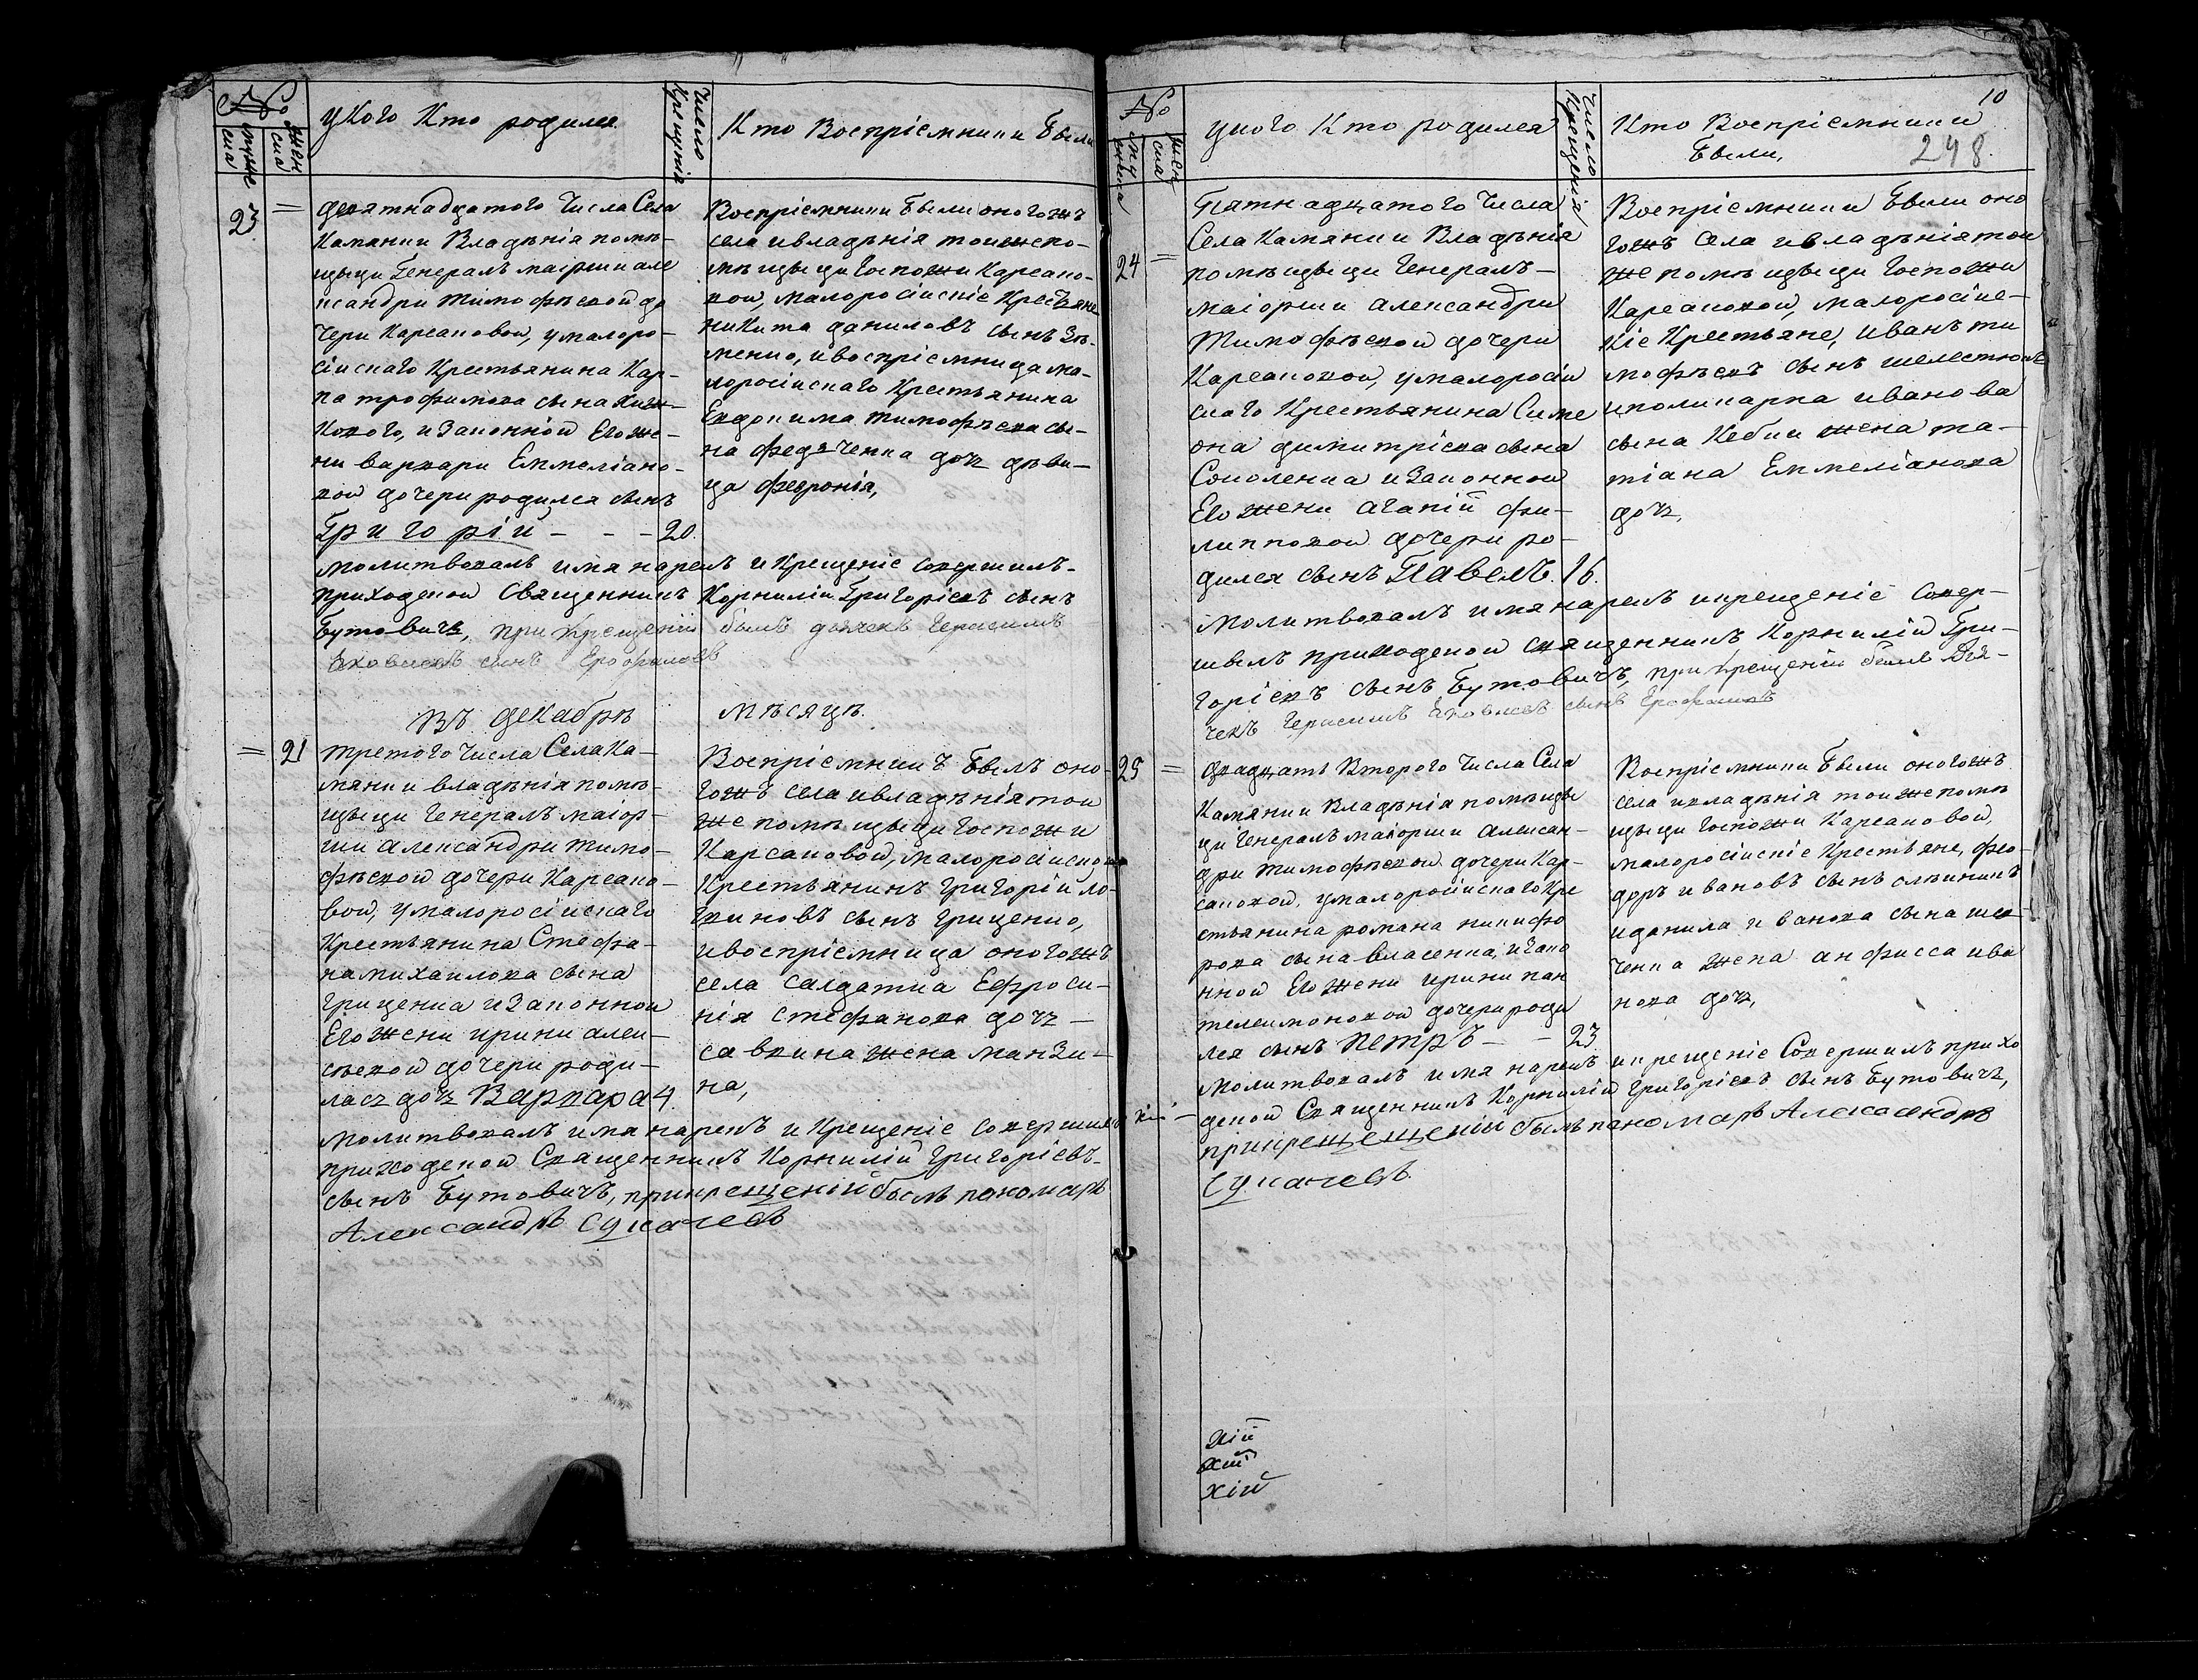 №
муже
ска
жен
ска
У кого кто родился
Число
Крещенія
Кто Воспріемники Были
23
=
девятнадцатого Числа Села
Камянки Владѣнія помѣ-
щыци Генералъ маіорши але
ксандри тимофѣевой до
чери Карсаковой, у малоро-
сійскаго Крестьянина Кар-
па трофимова сына
и Законной Его же-
ни варвари Еммеліано-
вой дочери родился сынъ
Григорій - - - 20.
Воспріемники Были оногожъ
села и владѣнія тоижепо-
мѣщыци Госпожи Карсако-
вой, малоросійскіе Крестьяне
никита даниловъ сынъ
и воспріемница ма-
лоросійскаго Крестьянина
Евдокима тимофѣева сы-
на федяченка дочь дѣви-
ца февронія,
молитвовалъ имя нарекъ и Крещеніе совершилъ-
приходской Священникъ Корнилій Григоріевъ сынъ
Бутовичь, при Крещеніи былъ дьячекъ Герасимъ
Яковлевъ сынъ Ерофаловъ
Въ декабрѣ мѣсяцѣ.
=
21
третого Числа Села Ка-
мянки владѣнія помѣ-
щыци Генералъ маіор-
ши александри тимо-
фѣевой дочери Карсако-
вой, у малоросійскаго
Крестьянина Стефа-
на михаилова сына
Гриценка и Законной
Его жени ирини алек-
сѣевой дочери роди-
лась дочь Варвара 4.
Воспріемникъ Былъ оно-
гожъ села и владѣнія той
же помѣщыци Госпожи
Карсаковой, малоросійской
Крестьянинъ григорій ло-
гиновъ сынъ гриценко,
и воспріемница оногожъ
села Салдатка Ефроси-
нія стефанова дочь -
саввина жена манзи-
на,
молитвовалъ имя нарекъ и Крещеніе совершилъ
приходской Священникъ Корнилій Григоріевъ-
сынъ Бутовичъ, прикрещеніи былъ пономарь
Александръ Сукачевъ
№
му
жска
жен
ска
у кого Кто родился
Число
Крещенія
Кто Воспріемники
Были,
10
248.
24
=
Пятнадцатого Числа
Села Камянки Владѣнія
помѣщыци Генералъ-
маіорши александри
Тимофѣевой дочери
Карсаковой, у малоросій
скаго Крестьянина Симе
она димитріева сына
Соколенка и Законной
Его жени агапіи фи-
липповой дочери ро-
дился сынъ Павелъ. 16.
Воспріемники Были оно
гожъ села и владѣнія той
же помѣщыци Госпожи
Карсаковой, малоросійс-
кіе Крестьяне, иванъ ти
мофѣевъ сынъ
и поликарпа иванова
сына Кебки жена та-
тіана Еммеліанова
дочь,
молитвовалъ имя нарекъ и крещеніе совер-
шилъ приходской священникъ Корнилій Гри-
горіевъ сынъ Бутовичъ, при Крещеніи былъ дья-
чекъ Герасимъ Яковлевъ сынъ Ерофаловъ
25
=
двадцать Второго Числа Села
Камянки Владѣнія помѣщы
ци Генералъ маіорши алексан-
дри тимофѣевой дочери Кар-
саковой, у малоросійскаго Кре
стьянина романа никифо
рова сына власенка, и Зако
нной Его жени ирини пан
телеимоновой дочери роди
лся сынъ Петръ - - 23.
Воспріемники Были оногожъ
села и владѣнія той же помѣ
щыци Госпожи Карсаковой,
малоросійскіе Крестьяне, фео-
доръ ивановъ сынъ
и данила иванова сына шев-
ченка жена анфисса ива
нова дочь,
молитвовалъ имя нарекъ и крещеніе Совершилъ прихо
дской Священникъ Корнилій григоріевъ сынъ Бутовичь,
прикрещещеніи былъ пономарь Александръ
Сукачевъ.
хій
хій